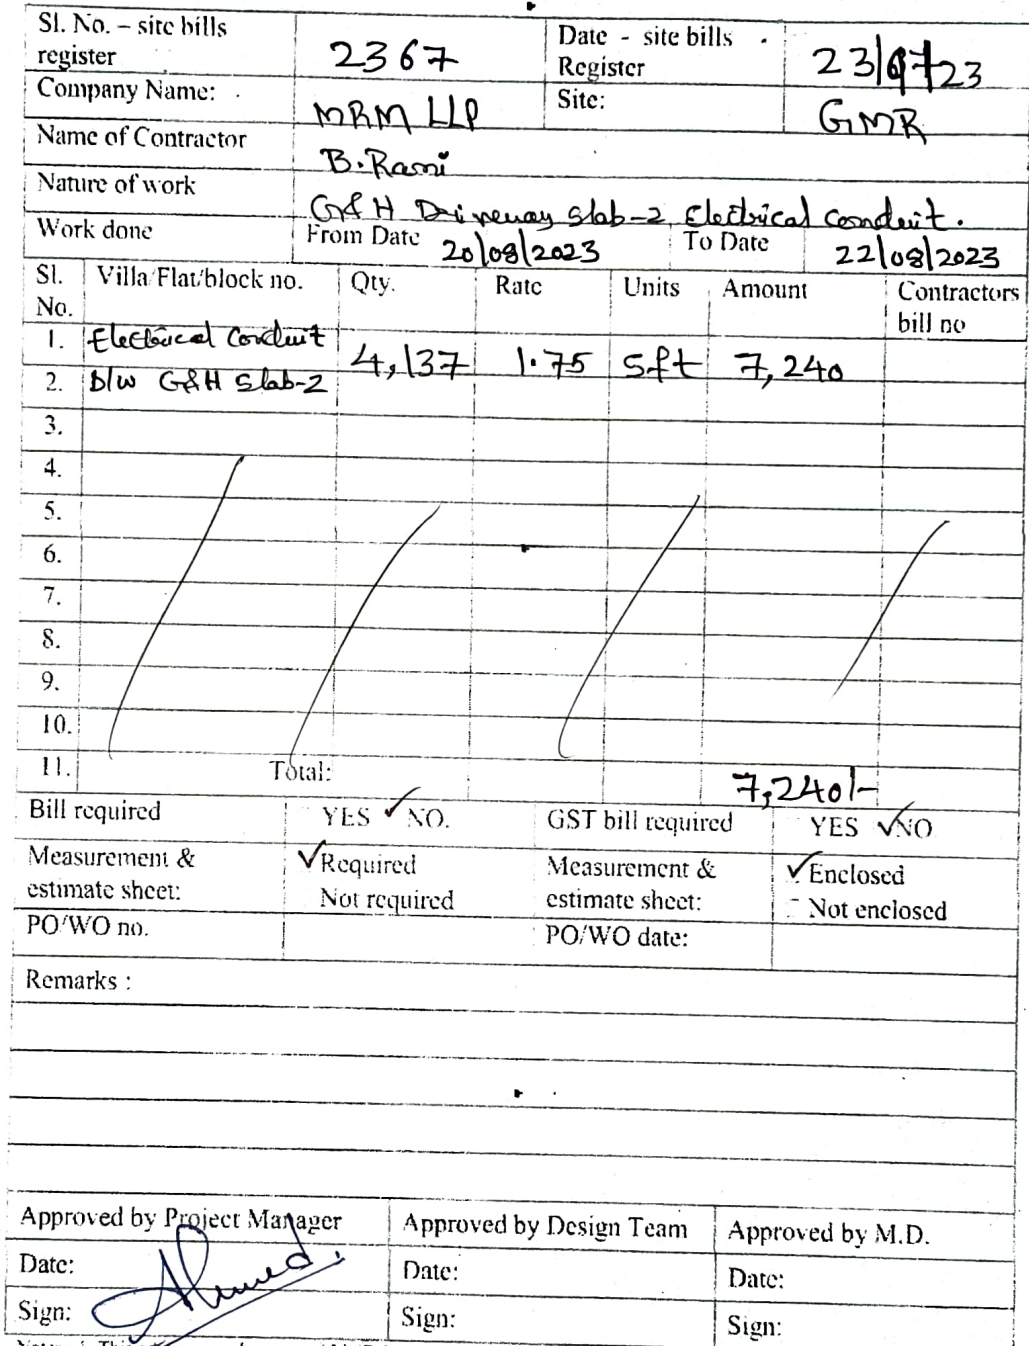 Sl. No. – site bills register 2367 Date - site bills Register 23/ /23
Company Name: MRM LLP Site: GMR
Name of Contractor B. Rami
Nature of work G&H Driveway Slab-2 Electrical conduit.
Work done From Date 20/08/2023 To Date 22/08/2023
Sl. No. Villa/Flat/block no. Qty. Rate Units Amount Contractors bill no
1. Electrical Conduit 4,137 1.75 sft 7,240
2. b/w G&H Slab-2
3.
4.
5.
6.
7.
8.
9.
10.
11. Total: 7,240/-
Bill required YES ✓ NO. GST bill required YES ✓ NO
Measurement & estimate sheet: ✓ Required Not required Measurement & estimate sheet: ✓ Enclosed Not enclosed
PO/WO no. PO/WO date:
Remarks :
Approved by Project Manager Approved by Design Team Approved by M.D.
Date: Date: Date:
Sign: Ahmed. Sign: Sign: